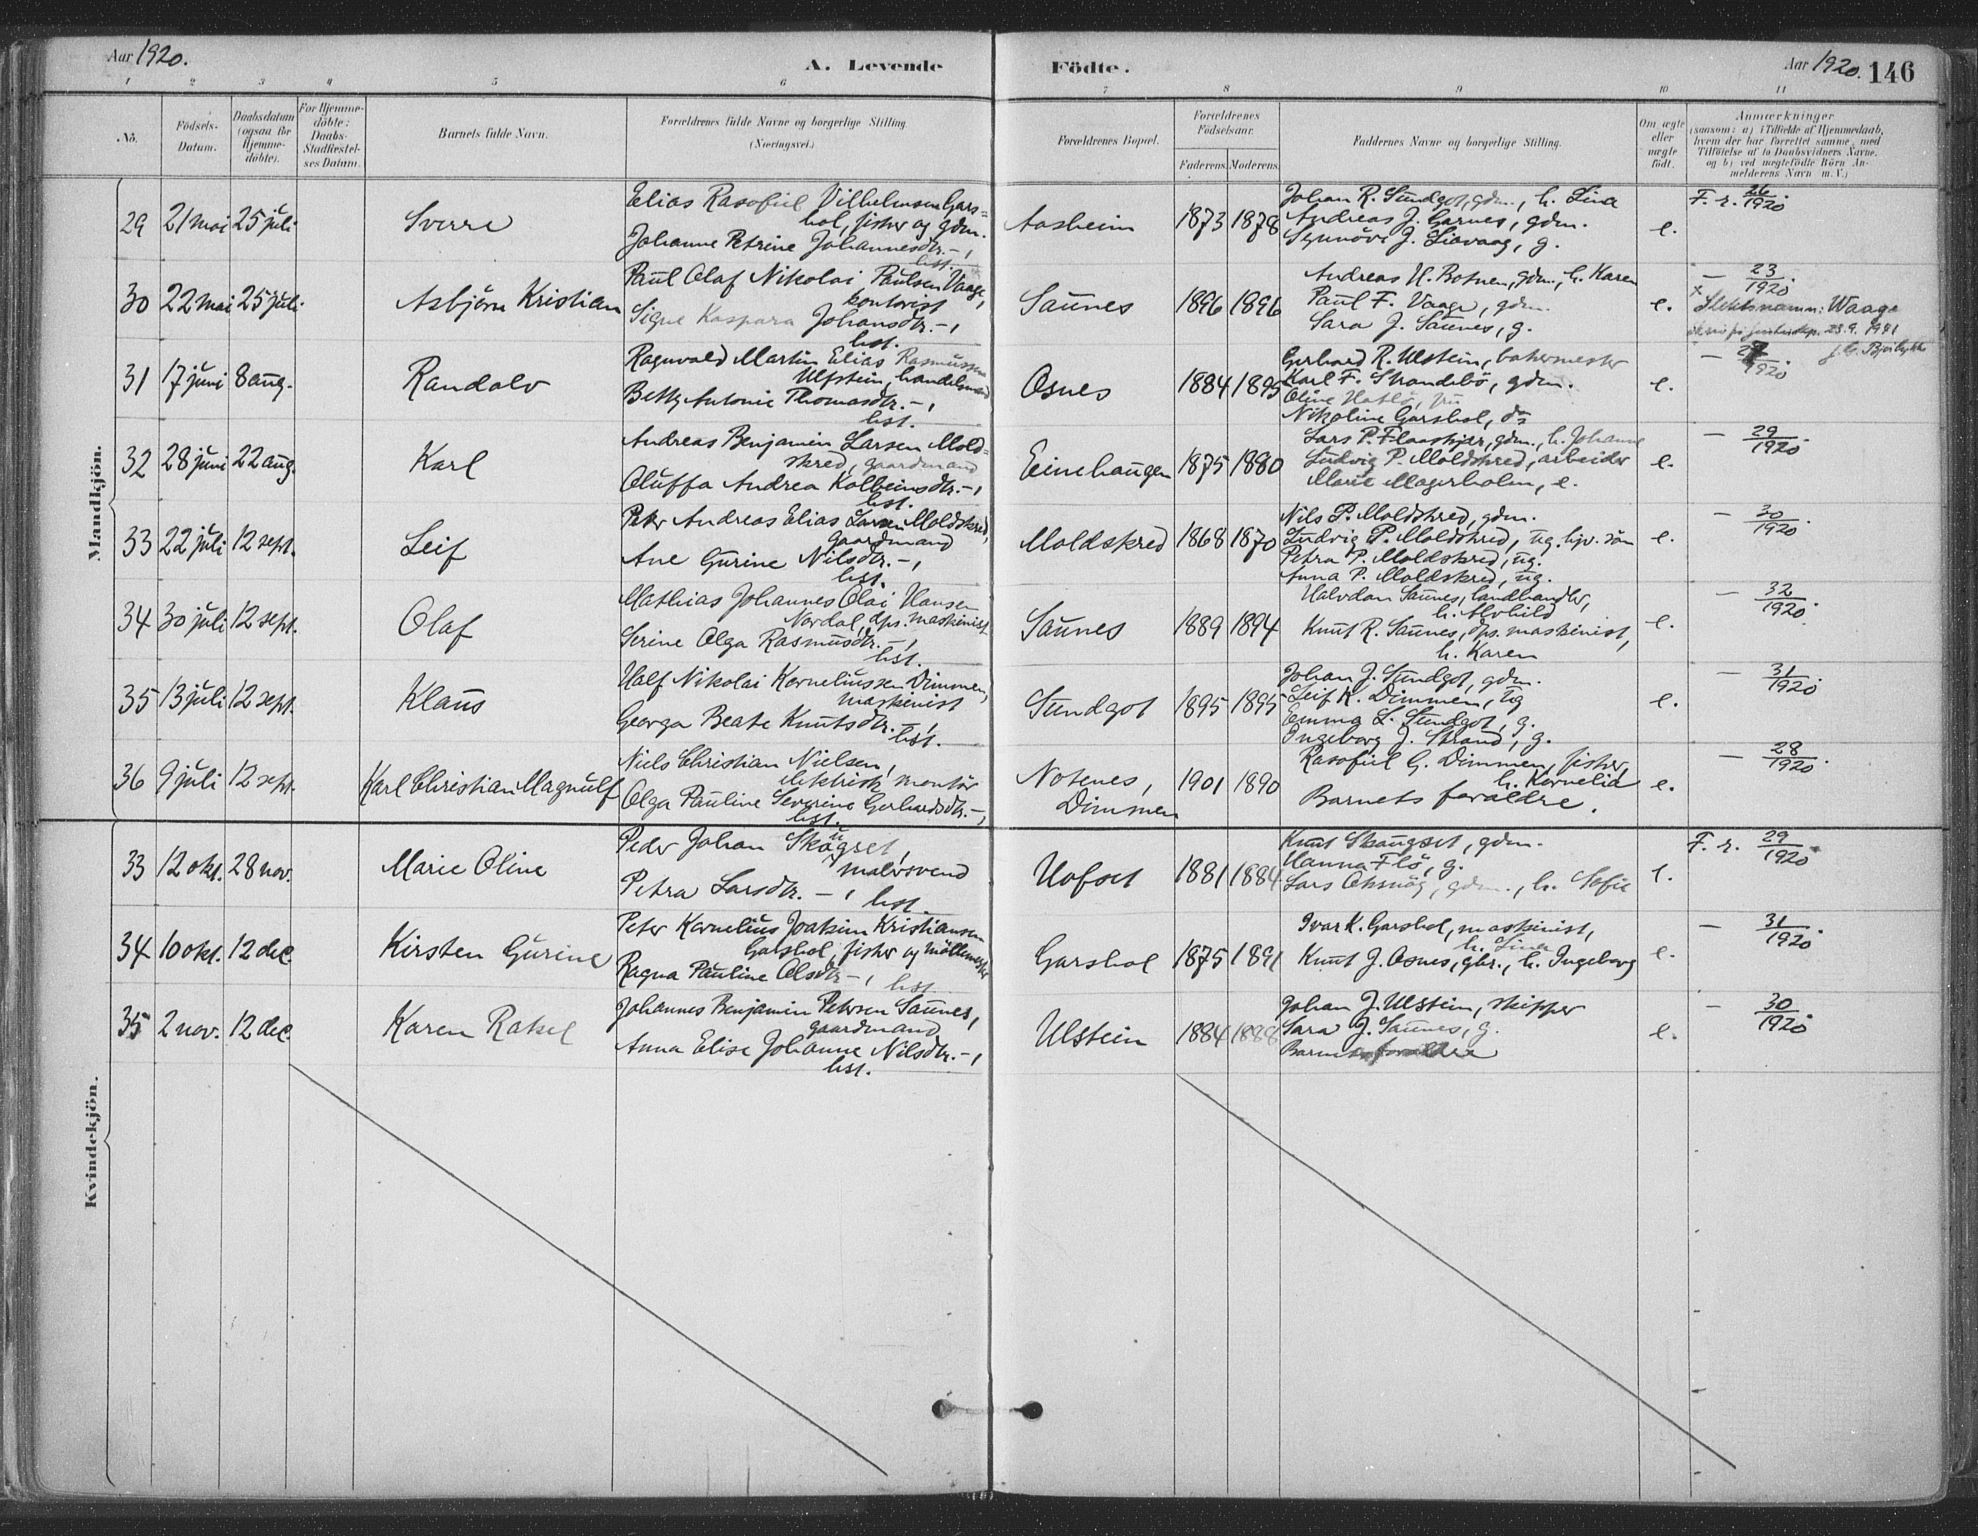 Aar 1920.
A. Levende Födte.
Aar 1920. 146
1 2 3 4 5 6 7 8 9 10 11
No.
Födsels-
Datum.
Daabsdatum
(ogsaa for
Hjemme-
döbte).
For Hjemme-
döbte:
Daabs-
Stadfæstel-
ses Datum.
Barnets fulde Navn.
Forældrenes fulde Navne og borgerlige Stilling.
(Næringsvei.)
Forældrenes Bopæl.
Forældrenes
Födselsaar.
Faderens. Moderens.
Faddernes Navne og borgerlige Stilling.
Om ægte
eller
uægte
födt.
Anmærkninger
(saasom: a) i Tilfælde af Hjemmedaab,
hvem der har forrettet samme, med
Tilföielse af to Daabsvidners Navne,
og b) ved uægtefödte Börn An-
melderens Navn m. V.)
Mandkjön.
29 21 mai 25 juli Sverre
Elias Rasofiel Vilhelmsen Gars-
hol, fisker og gdm.
Johanne Petrine Johannesdtr. -,
hst.
Aasheim 1873 1878
Johan R. Sundgot, gdm., h. Lina
Andreas J. Garnes, gdm.
Synnöve J. Liavaag, g.
e. F. r. 26/1920.
30 22 mai 25 juli Asbjörn Kristian
Paul Olaf Nikolai Paulsen Vaage,
kontorist
Signe Kaspara Johansdtr. -,
hst.
Saunes 1896 1896
Andreas H. Botnen, gdm., h. Karen
Paul F. Vaage, gdm.
Sara J. Saunes, g.
e. - 23/1920.
x Slektsnamn: Waage
23.9.1941
31 17 juni 8 aug. Randolv
Ragnvald Martin Elias Rasmussen
Ulfstein, handelsmand
Betty Antonie Thomasdtr. -,
hst.
Osnes 1884 1895
Gerhard R. Ulstein, bakermester
Karl F. Strandebö, gdm.
Oline Hatlö, fru
Nikoline Garshol, ds
e. - 27/1920
32 28 juni 22 aug. Karl
Andreas Benjamin Larsen Mold-
skred, gaardmand
Oluffa Andrea Kolbeinsdtr. -,
hst.
Einehaugen 1875 1880
Lars P. Flaaskjær, gdm., h. Johanne
Ludvig P. Moldskred, arbeider
Marie Magerholm, e.
e. - 29/1920.
33 22 juli 12 sept. Leif
Peter Andreas Elias Larsen Moldskred,
gaardmand
Ane Gurine Nilsdtr. -,
hst.
Moldskred 1868 1870
Nils P. Moldskred, gdm.
Ludvig P. Moldskred, ug. hjv. sön
Petra P. Moldskred, ug.
Anna P. Moldskred, ug.
e. - 30/1920.
34 30 juli 12 sept. Olaf
Mathias Johannes Olai Hansen
Nordal, dps. maskinist
Serine Olga Rasmusdtr. -,
hst.
Saunes 1889 1894
Halvdan Saunes, landhandler,
h. Alvhild
Knut R. Saunes, dps. maskinist,
h. Karen
e. - 32/1920.
35 13 juli 12 sept. Klaus
Half Nikolai Korneliussen Dimmen,
maskinist
Georga Beate Knutsdtr. -,
hst.
Sundgot 1895 1895
Johan J. Sundgot, gdm.
Leif K. Dimmen, ug
Emma L. Sundgot, g.
Ingeborg J. Strand, g.
e. - 31/1920.
36 9 juli 12 sept. Karl Christian Magnulf
Niels Christian Nielsen,
elektrisk montör
Olga Pauline Severine Gerhardsdtr. -,
hst.
Notenes,
Dimmen 1901 1890
Rasofiel G. Dimmen, fisker,
h. Kornelia
Barnets forældre.
e. - 28/1920.
Kvindekjön.
33 12 okt. 28 nov. Marie Oline
Peder Johan Skaugset,
malersvend
Petra Larsdtr. -, hst.
Hofset 1881 1884
Knut Skaugset, gdm.
Hanna Flö, g.
Lars Oksnög, gdm., h. Sofie
e. F. r. 29/1920.
34 10 okt. 12 dec. Kirsten Gurine
Peter Kornelius Joakim Kristiansen
Garshol, fisker og möllemester
Ragna Pauline Olsdtr -, hst.
Garshol 1875 1891
Ivar K. Garshol, maskinist,
h. Lina
Knut J. Osnes, gbr., h. Ingeborg
e. - 31/1920.
35 2 nov. 12 dec. Karen Rakel
Johannes Benjamin Petersen Saunes,
gaardmand
Anna Elise Johanne Nilsdtr. -,
hst.
Ulstein 1884 1888
Johan J. Ulstein, skipper
Sara J. Saunes, g.
Barnets forældre
e. - 30/1920.